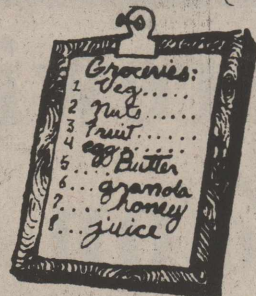 Groceries:
1 Veg.....
2 Nuts.....
3 Fruit......
4 egg.....
5 ....Butter
6 ...granola
7.....honey
8...juice